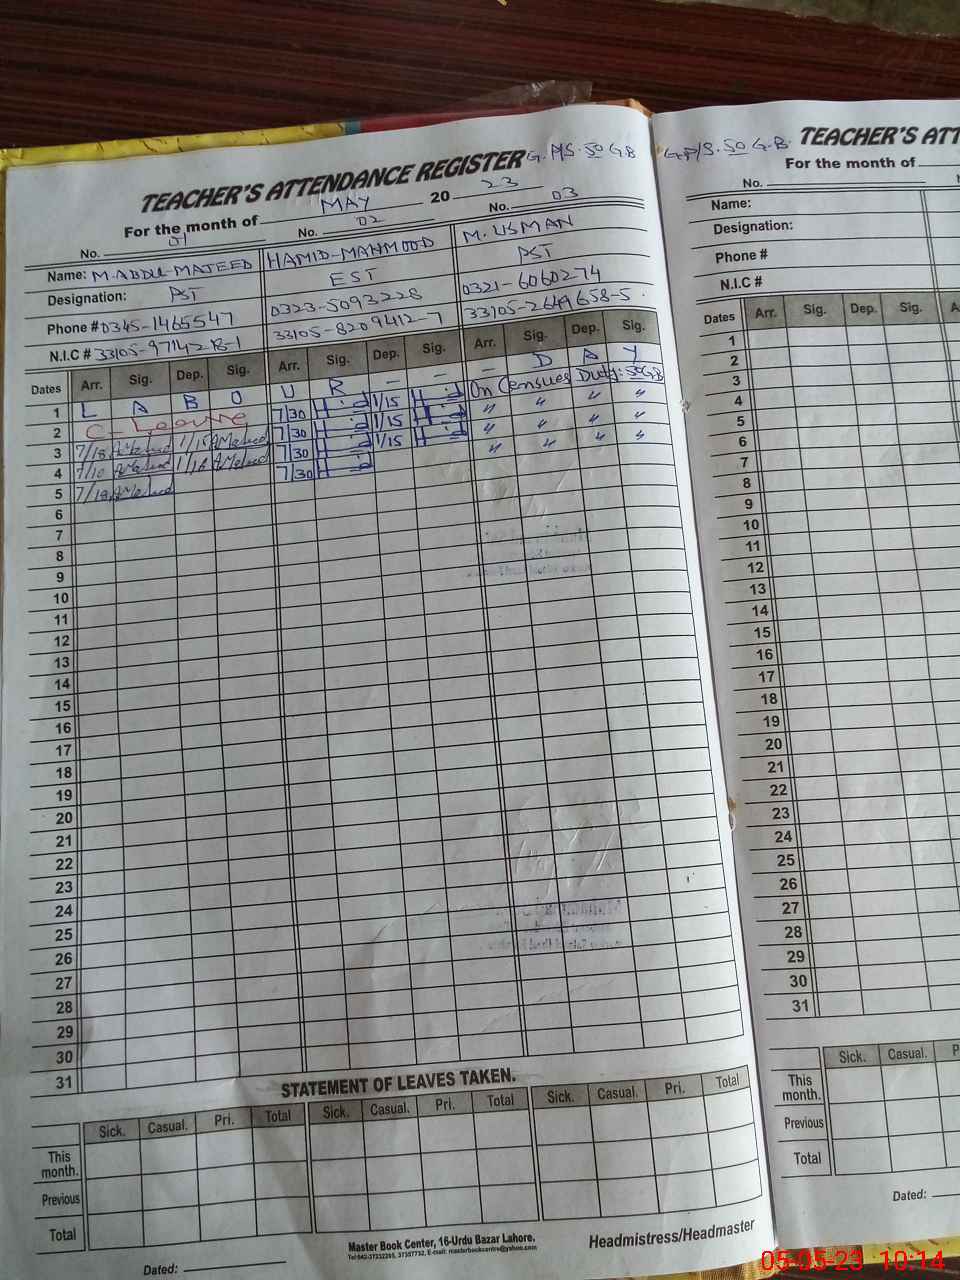 TEACHER'S ATTENDANCE REGISTER G.P/S. 50 G.B
For the month of MAY 20 23
No. 01 No. 02 No. 03
Name: M. ABDUL-MAJEED HAMID-MAHMOOD M. USMAN
Designation: PST EST PST
Phone # 0345-1465547 0323-5093228 0321-6060274
N.I.C # 33105-8209412-7 33105-2649658-5
Dates Arr. Sig. Dep. Sig. Arr. Sig. Dep. Sig. Arr. Sig. Dep. Sig.
1 L A B O U R - - - D A Y
2 C-Leave 7/30 1/15 On Census Duty: 50 G.B
3 7/18 1/15 7/30 1/15 " " " "
4 7/10 1/16 7/30 1/15 " " " "
5 7/18 7/30 " " " "
6
7
8
9
10
11
12
13
14
15
16
17
18
19
20
21
22
23
24
25
26
27
28
29
30
31
STATEMENT OF LEAVES TAKEN.
Sick. Casual. Pri. Total Sick. Casual. Pri. Total Sick. Casual. Pri. Total
This month.
Previous
Total
Master Book Center, 16-Urdu Bazar Lahore.
Headmistress/Headmaster
Dated:
G.P/S. 50 G.B. TEACHER'S ATT
For the month of
No.
Name:
Designation:
Phone #
N.I.C #
Dates Arr. Sig. Dep. Sig.
1
2
3
4
5
6
7
8
9
10
11
12
13
14
15
16
17
18
19
20
21
22
23
24
25
26
27
28
29
30
31
Sick. Casual. P
This month.
Previous
Total
Dated:
05-05-23 10:14